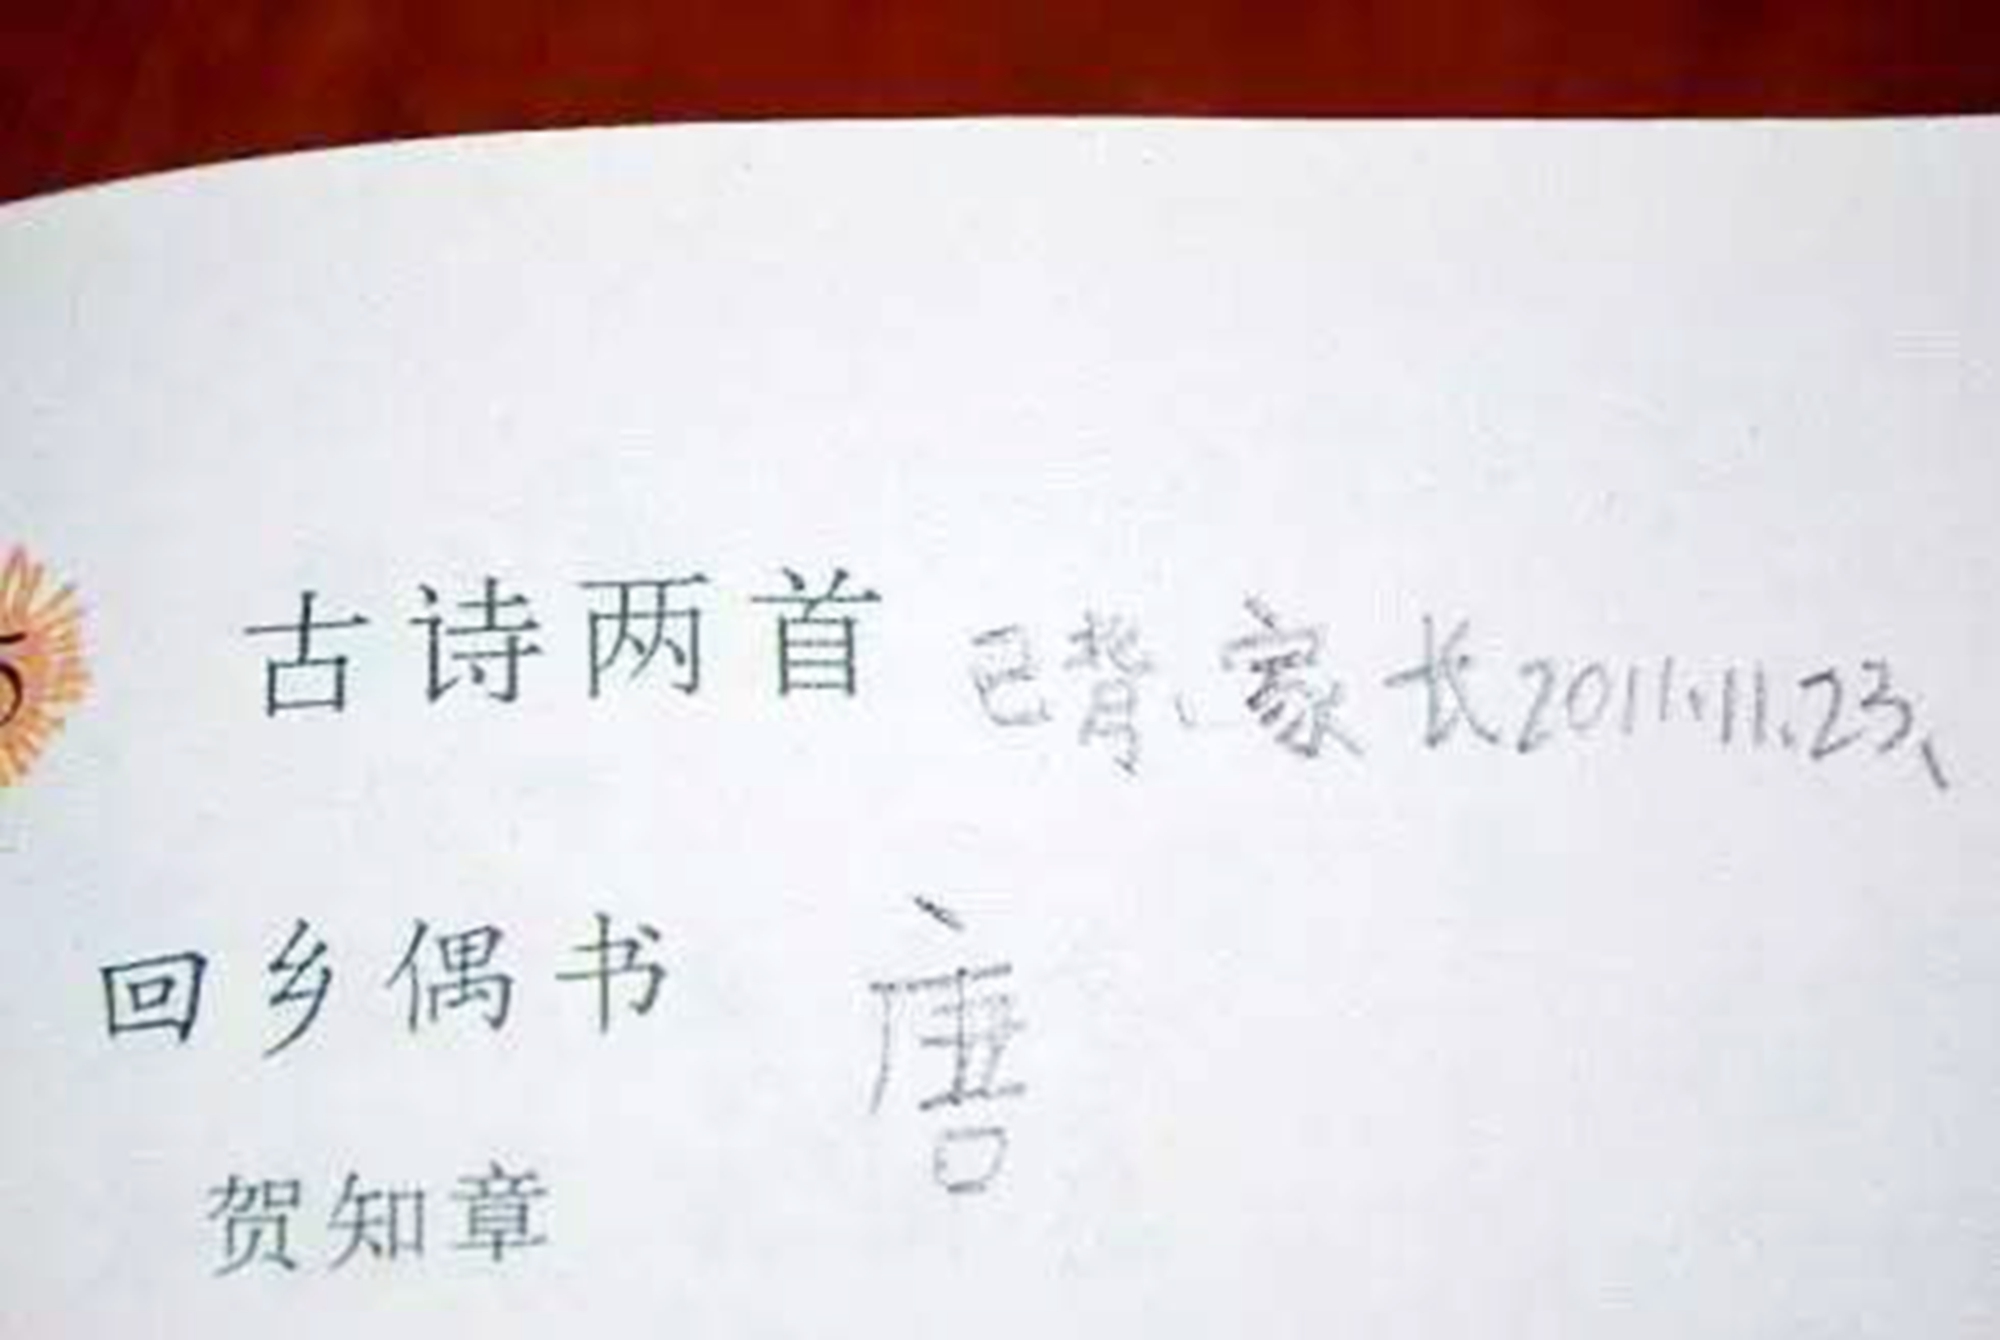 5 古诗两首 已背、家长2011.11.23、
回乡偶书 唐
贺知章